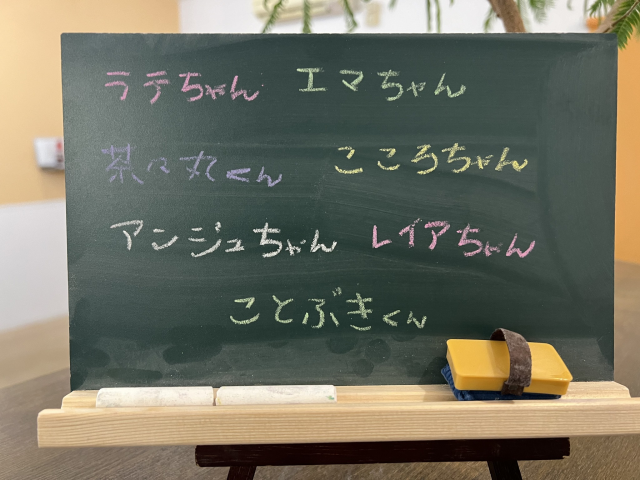 ラテちゃん エマちゃん
茶々丸くん こころちゃん
アンジュちゃん レイアちゃん
ことぶきくん